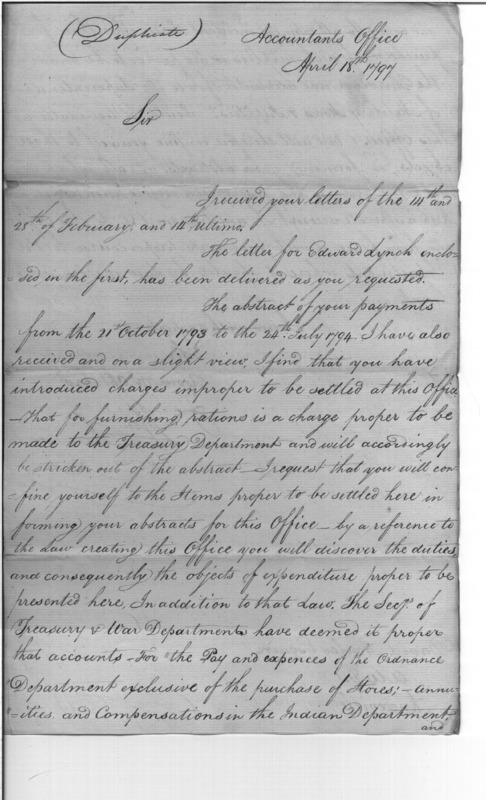 (Duplicate)
Accountants Office
April 18th 1797
Sir
I received your letters of the 14th and
28th of February, and 14th Ultimo,
The letter for Edward Lynch enclo-
-sed in the first, has been delivered as you requested.
The abstract of your payments
from the 21st October 1793 to the 24th July 1794. I have also
received and on a slight view, I find that you have
introduced charges improper to be settled at this Office
- that for furnishing rations is a charge proper to be
made to the Treasury Department and will accordingly
be stricken out of the abstract - I request that you will con
-fine yourself to the Items proper to be settled here in
forming your abstracts for this Office - by a reference to
the Law creating this Office you will discover the duties,
and consequently the objects of expenditure proper to be
presented here, In addition to that Law. The Secy. of
Treasury & War Departments have deemed it proper
that accounts - For "the Pay and expences of the Ordnance
"Department exclusive of the purchase of Stores; - annu-
"-ities and Compensations in the Indian Department -
and